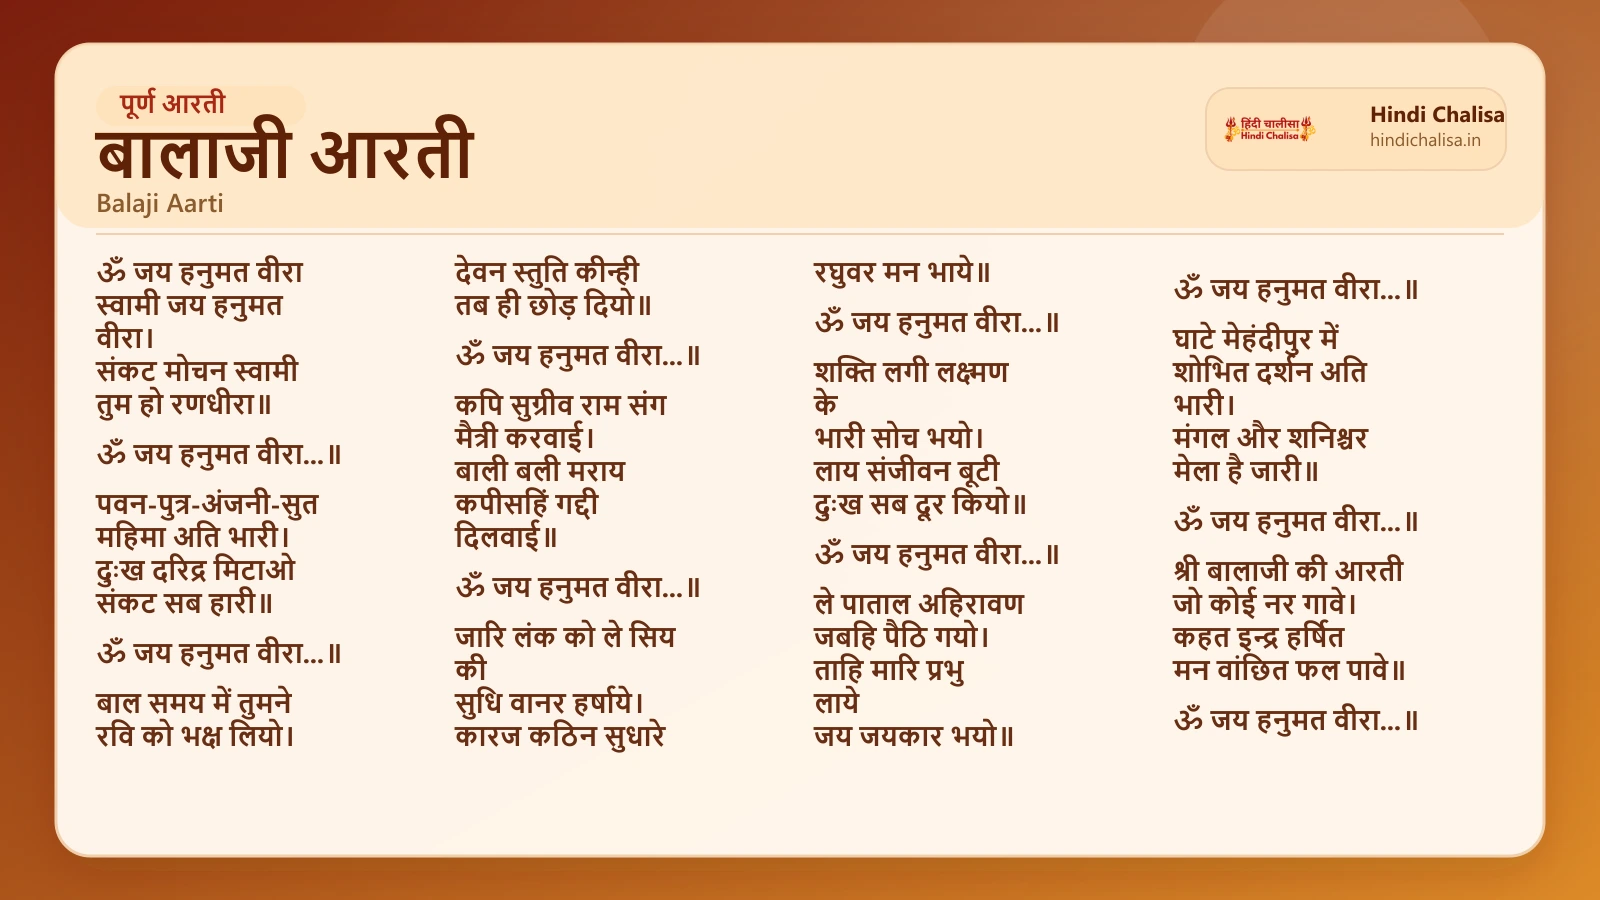 पूर्ण आरती
बालाजी आरती
Balaji Aarti
हिंदी चालीसा
Hindi Chalisa
Hindi Chalisa
hindichalisa.in
ॐ जय हनुमत वीरा
स्वामी जय हनुमत
वीरा।
संकट मोचन स्वामी
तुम हो रणधीरा॥
ॐ जय हनुमत वीरा...॥
पवन-पुत्र-अंजनी-सुत
महिमा अति भारी।
दुःख दरिद्र मिटाओ
संकट सब हारी॥
ॐ जय हनुमत वीरा...॥
बाल समय में तुमने
रवि को भक्ष लियो।
देवन स्तुति कीन्ही
तब ही छोड़ दियो॥
ॐ जय हनुमत वीरा...॥
कपि सुग्रीव राम संग
मैत्री करवाई।
बाली बली मराय
कपीसहिं गद्दी
दिलवाई॥
ॐ जय हनुमत वीरा...॥
जारि लंक को ले सिय
की
सुधि वानर हर्षाये।
कारज कठिन सुधारे
रघुवर मन भाये॥
ॐ जय हनुमत वीरा...॥
शक्ति लगी लक्ष्मण
के
भारी सोच भयो।
लाय संजीवन बूटी
दुःख सब दूर कियो॥
ॐ जय हनुमत वीरा...॥
ले पाताल अहिरावण
जबहि पैठि गयो।
ताहि मारि प्रभु
लाये
जय जयकार भयो॥
ॐ जय हनुमत वीरा...॥
घाटे मेहंदीपुर में
शोभित दर्शन अति
भारी।
मंगल और शनिश्चर
मेला है जारी॥
ॐ जय हनुमत वीरा...॥
श्री बालाजी की आरती
जो कोई नर गावे।
कहत इन्द्र हर्षित
मन वांछित फल पावे॥
ॐ जय हनुमत वीरा...॥